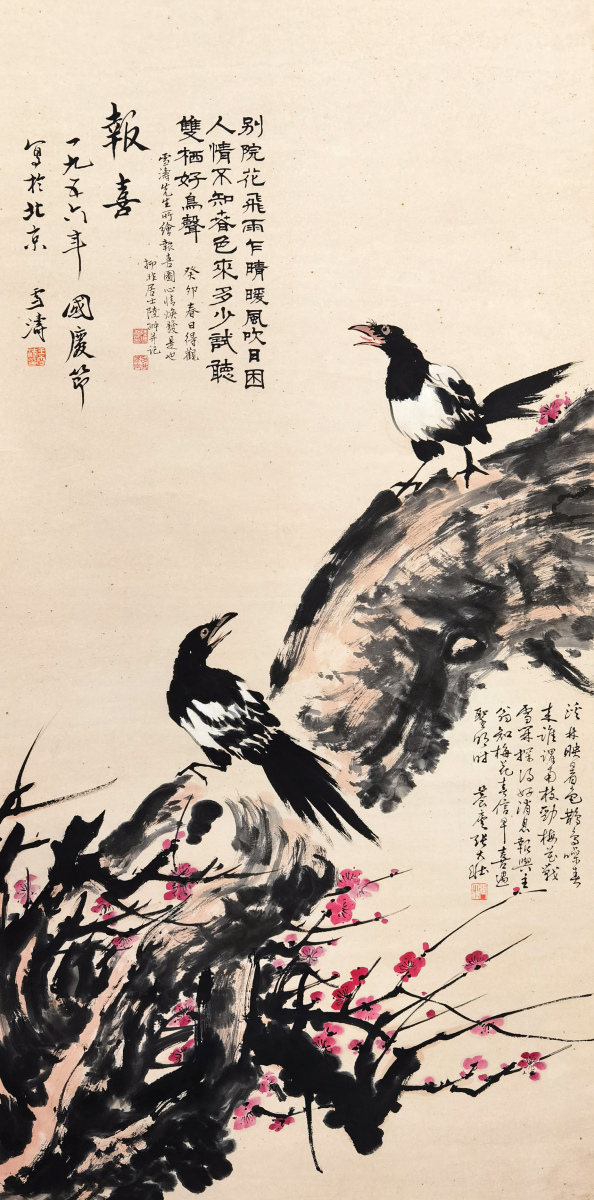 別院花飛雨乍晴暖風吹日困
人情不知春色來多少試聽
雙栖好鳥聲
癸卯春日得觀
雪濤先生所繪報喜圖心情煥發是也
抑非居士陸抑非记
報喜
一九五六年國慶節
寫於北京 雪濤
溪林映着色鵲鳥噪春
未誰謂南枝勁梅花戰
雪寒探得好消息報與主
翁知梅花春信早喜遇
聖明时 養廬張大壯